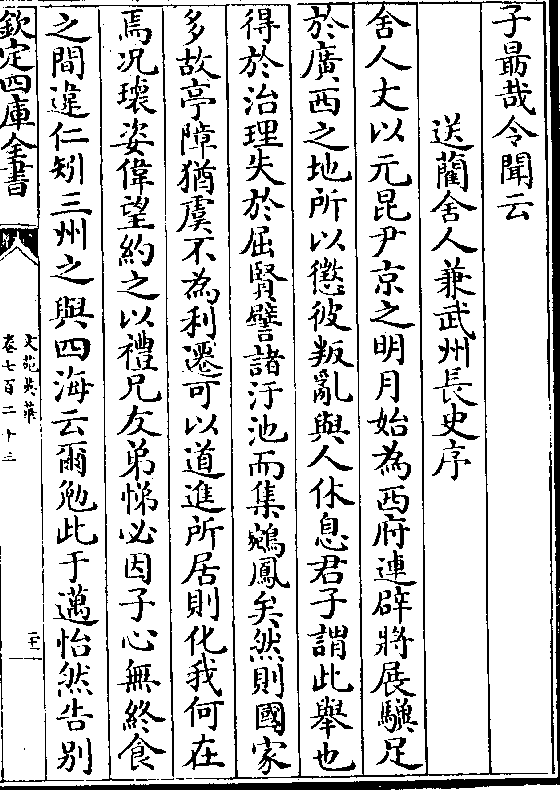 子最哉令聞云
送藺舍人兼武州長史序
舍人丈以元昆尹京之明月始為西府連辟將展驥足
於廣西之地所以懲彼叛亂與人休息君子謂此舉也
得於治理失於屈賢譬諸汙池而集鵷鳳矣然則國家
多故亭障猶虞不為利遷可以道進所居則化我何在
焉况瓌姿偉望約之以禮兄友弟悌必因子心無終食
之間違仁矧三州之與四海云爾勉此于邁怡然告别
欽定四庫全書
文苑英華
卷七百二十三